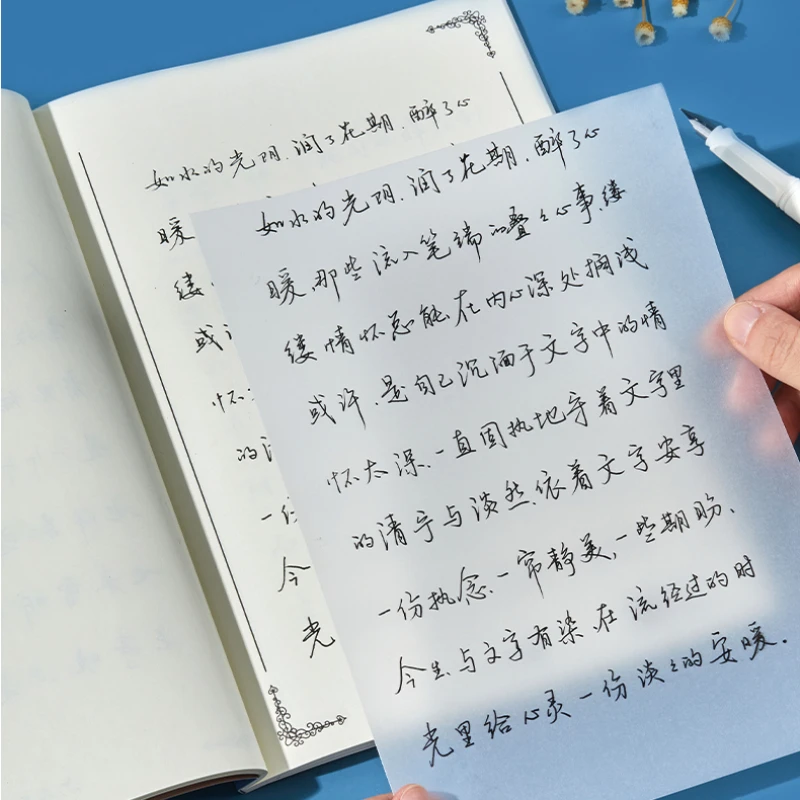 如水的光阴、润了花期、醉了心
暖
缕
或
怀
的
一
今
光
如水的光阴、润了花期、醉了心
暖、那些流入笔端的叠々心事、缕
缕情怀总能在内心深处搁浅
或许、是自己沉湎于文字中的情
怀太深、一直固执地守着文字里
的清宁与淡然、依着文字安享
一份执念、一帘静美、一些期盼、
今生、与文字有染、在流经过的时
光里给心灵一份淡々的安暖.